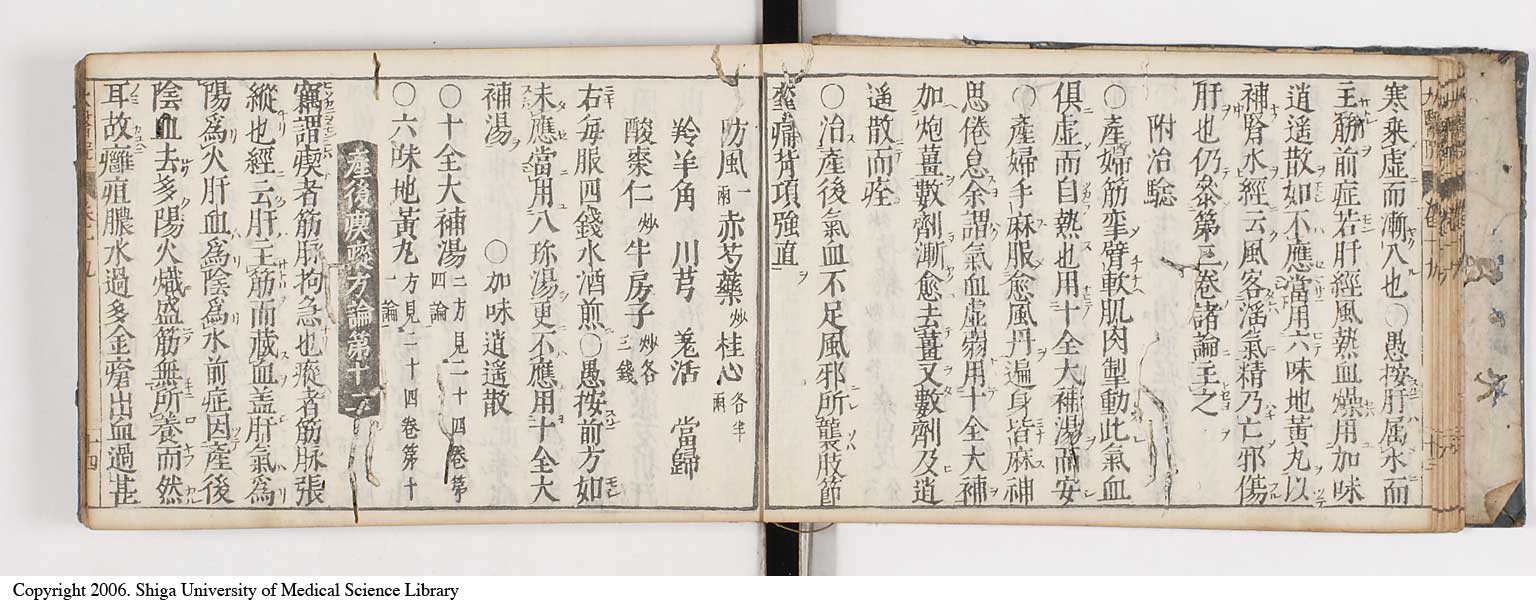 寒乘虚而漸入也○愚按肝属水而
主筋前症若肝經風熱血燥用加味
逍遥散如不應當用六味地黄丸以
補腎水經云風客滛氣精乃亡邪傷
肝也仍叅第三卷諸論主之
附治驗
○產婦筋牽臂軟肌肉掣動此氣血
俱虚而自熱也用十全大補湯而安
○產婦手麻服愈風丹遍身皆麻神
思倦怠余謂氣血虚弱用十全大補
加炮薑數劑漸愈去薑又數劑及逍
遥散而痊
○治產後氣血不足風邪所襲肢節
攣痛背項強直
防風一兩赤芍藥炒桂心各半兩
羚羊角 川芎 羗活 當歸
酸棗仁炒牛房子炒各三錢
右每服四錢水酒煎○愚按前方如
未應當用八珎湯更不應用十全大
補湯 ○加味逍遥散
○十全大補湯二方見二十四卷第四論
○六味地黄丸方見二十四卷第十一論
產後瘈瘲方論第十
竊謂瘈者筋脉拘急也瘲者筋脉張
縱也經云肝主筋而藏血盖肝氣爲
陽爲火肝血爲陰爲水前症因產後
陰血去多陽火熾盛筋無所養而然
耳故癰疽膿水過多金瘡出血過甚
十四
Copyright 2006. Shiga University of Medical Science Library